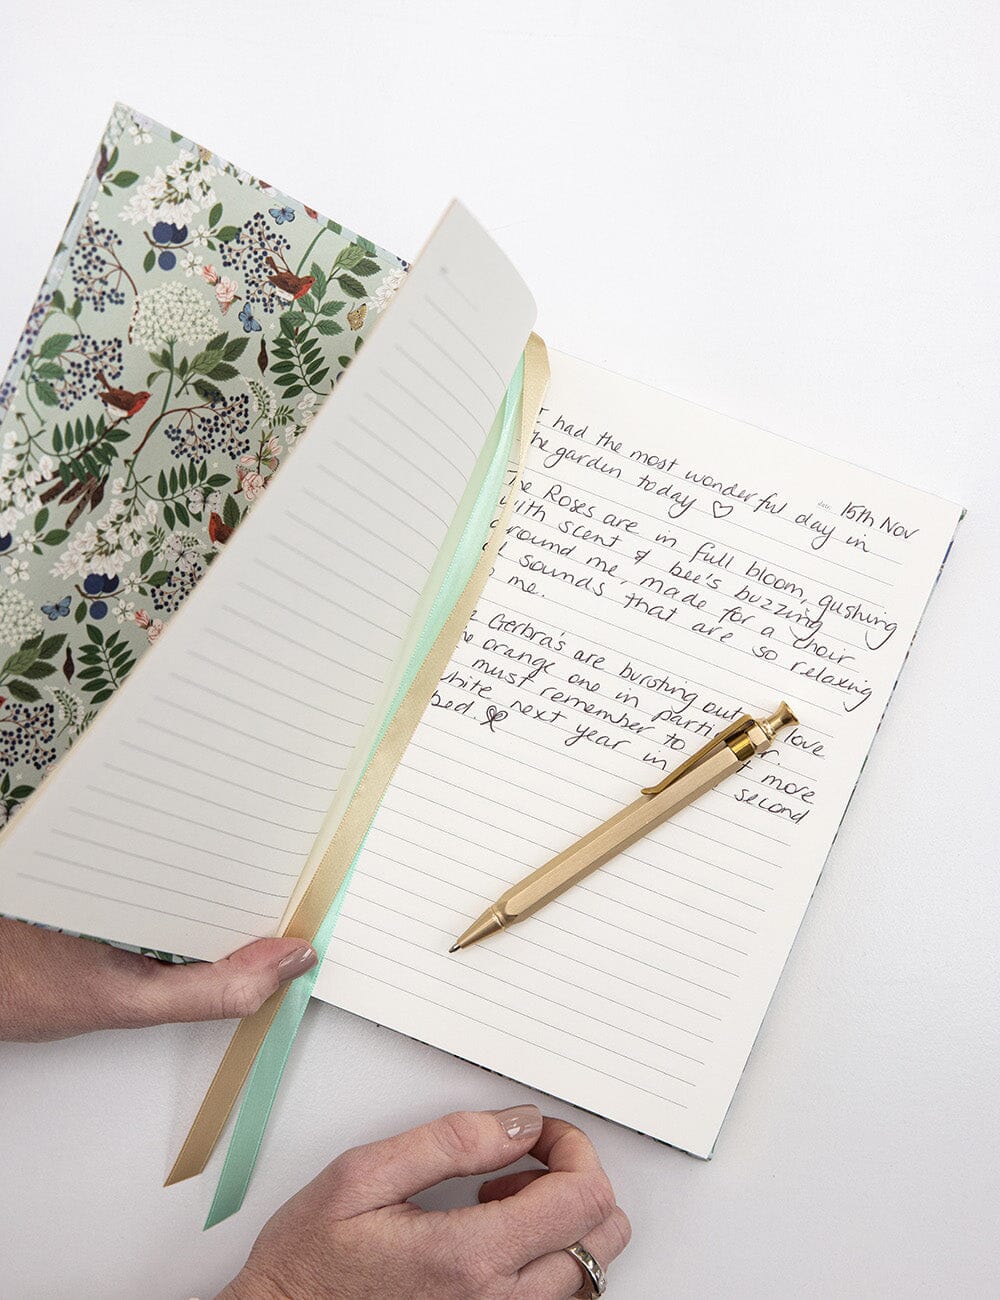 date: 15th Nov
I had the most wonderful day in
the garden today ♡
The Roses are in full bloom, gushing
with scent & bee's buzzing
around me, made for a choir
sounds that are so relaxing
me.
Gerbra's are bursting out love
orange one in
must remember to more
white next year in second
bed.